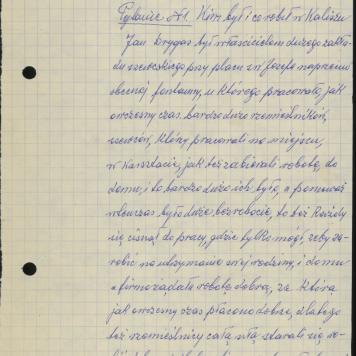 Pytanie nr 1. Kim był i co robił w Kaliszu
Jan Drygas był właścicielem dużego zakła-
du szewckiego przy placu św Józefa naprzeciw
obecnej fontanny, u którego pracowało, jak
ówczesny czas bardzo dużo rzemieślników,
szewców, którzy pracowali na miejscu,
w warsztacie, jak też zabierali robotę, do
domu, i to bardzo dużo ich było, a ponieważ
wówczas było duże bezrobocie, to też każdy
się cisnął do pracy, gdzie tylko mógł, żeby za-
robić na utrzymanie swej rodziny, i domu
a firma żądała robotę dobrą, za którą
jak ówczesny czas płacono dobrze, dlatego
też rzemieślnicy całą siłą starali się ro-